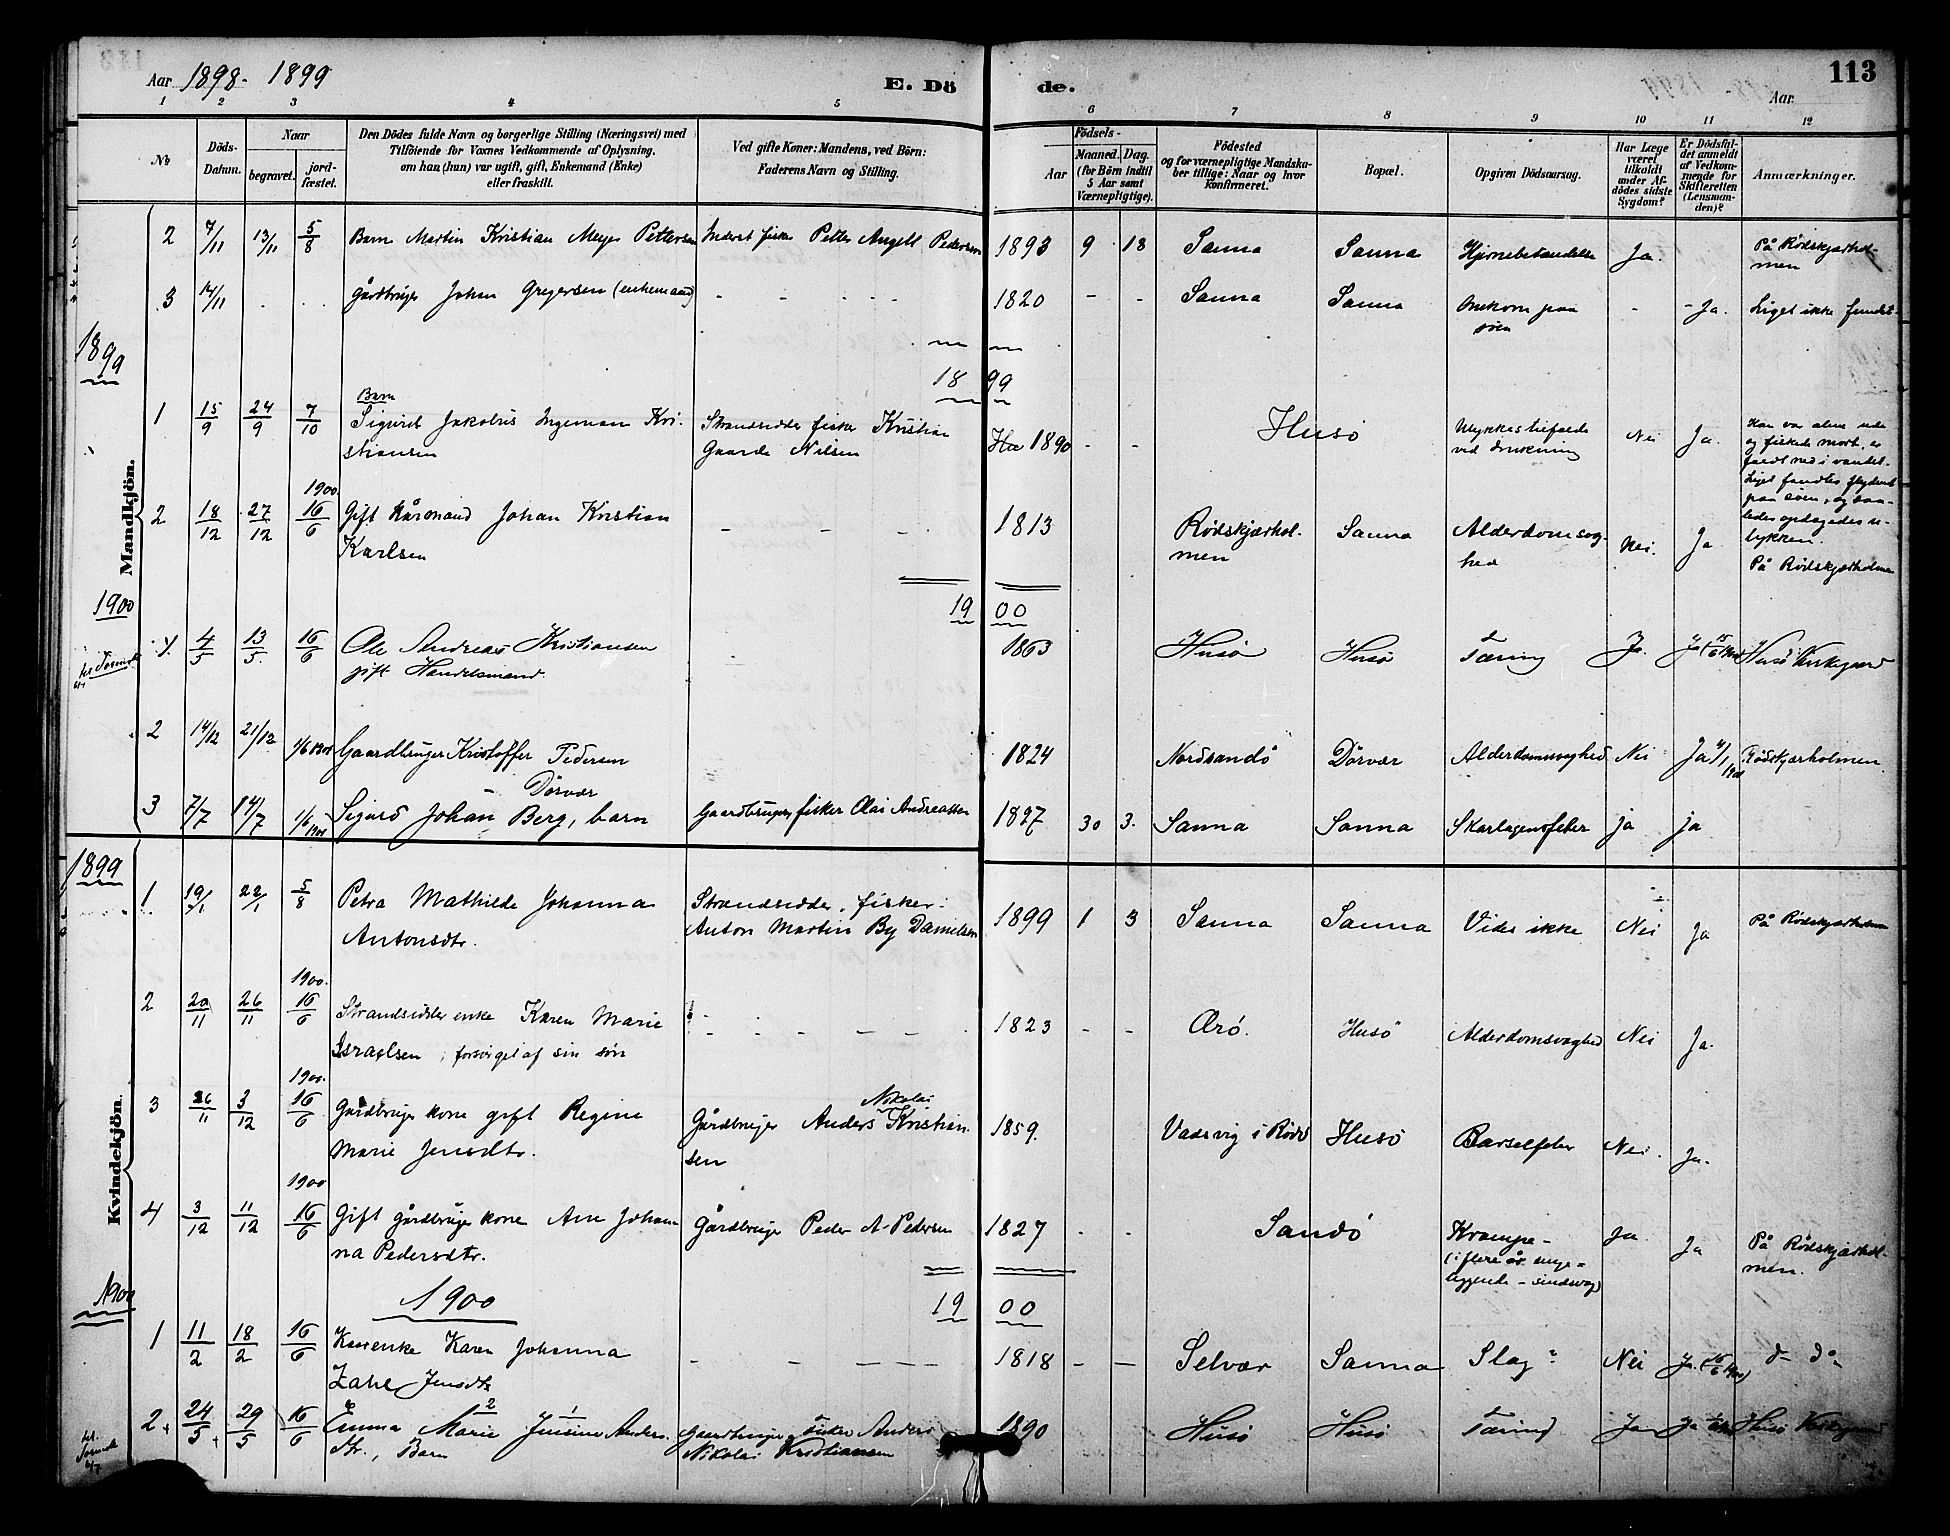 Aar 1898 - 1899
E. Dö de.
113
Aar
1 2 3 4 5 6 7 8 9 10 11 12
No
Döds-
Datum.
Naar
begravet.
jord-
fæstet.
Den Dödes fulde Navn og borgerlige Stilling (Næringsvei) med
Tilföiende for Voxnes Vedkommende af Oplysning,
om han (hun) var ugift, gift, Enkemand (Enke)
eller fraskilt.
Ved gifte Koner: Mandens, ved Börn:
Faderens Navn og Stilling.
Födsels-
Aar
Maaned. Dag.
(for Börn indtil
5 Aar samt
Værnepligtige).
Födested
og for værnepligtige Mandska-
ber tillige: Naar og hvor
konfirmeret.
Bopæl.
Opgiven Dödsaarsag.
Har Læge
været
tilkaldt
under Af-
dödes sidste
Sygdom?
Er Dödsfal-
det anmeldt
af Vedkom-
mende for
Skifteretten
(Lensman-
den)?
Anmærkninger.
Mandkjön.
2 7/11 13/11 5/8 Barn Martin Kristian Meyer Pettersen Inderst fisker Petter Angell Pedersen 1893 9 18 Sanna Sanna Hjernebetændelse Ja. På Rødskjærhol-
men
3 14/11 . . Gårdbruger Johan Gregersen (enkemand) - - - - 1820 - - Sanna Sanna Omkom paa
søen - - Ja. Liget ikke fundet
1899
18 99
1 15/9 24/9 7/10 Barn
Sigurd Jakobus Ingeman Kri-
stiansen Strandsidder fisker Kristian
Gaarde Nilsen 1890 - - Husö Ulykkestilfælde
ved drukning Nei Ja. Han var alene ude
og fiskede mort, er
faldt ned i vandet.
Liget fandtes flydende
paa søen, og saa-
ledes opdagedes u-
lykken.
2 18/12 27/12 1900. 16/6 Gift Kårmand Johan Kristian
Karlsen - - - 1813 Rødskjærhol-
men Sanna Alderdomsvag-
hed Nei. Ja På Rödskjærholmen
1900
19 00
1. 4/5 13/5. 16/6 Ole Andreas Kristiansen
gift Handelsmand 1863 Husö Husö Tæring Ja. Ja (15/6 1900) Husö Kirkegaard
2 14/12 21/12 1/6 1901 Gaardbruger Kristoffer Pedersen
Dörvær 1824 Nordsandö Dörvær Alderdomsvaghed Nei Ja Rödskjærholmen
3 7/7 14/7 1/6 1901 Sigurd Johan Berg, barn Gaardbruger, fisker Olai Andreassen 1827 30 3. Sanna Sanna Skarlagensfeber ja ja
Kvindekjön.
1899
1 19/1 22/1 5/8 Petra Mathilde Johanna
Antonsdtr. Strandsidder, fisker:
Anton Martin By Danielsen 1899 1 3 Sanna Sanna Vides ikke Nei Ja På Rødskjærholmen
2 20/11 26/11 1900. 16/6 Strandsidder enke Karen Marie
Israelsen, forsørget af sin søn - - - - - 1823 - - Örö. Husö Alderdomsvaghed Nei Ja.
3 26/11 3/12 1900. 16/6 Gårdbruger kone gift Regine
Marie Jensdtr. Gårdbruger Anders Nikolai Kristian-
sen 1859. Vadsvig i Rödö Husö Barselfeber Nei. Ja.
4 3/12 11/12 1900 16/6 Gift gårdbruger kone Ane Johan
na Pedersdtr. Gårdbruger Peder A. Pedersen 1827 - - Sandö Krampe -
(i flere år senge-
liggende - sindssvag) Ja. Ja På Rødskjærhol-
men.
1900
1900
19 00
1 11/2 18/2 16/6 Kaarenke Karen Johanna
Zahl Jensdtr - - - - - 1818 - - Selvær Sanna Slag Nei Ja (15/6 1900) do do
2 24/5 29/5 16/6 Emma Marie Jensine Anders-
dtr., Barn Gaardbruger, Fisker Anders
Nikolai Kristiansen 1890 Husö Husö Tæring Ja Ja Husö Kirkegaard